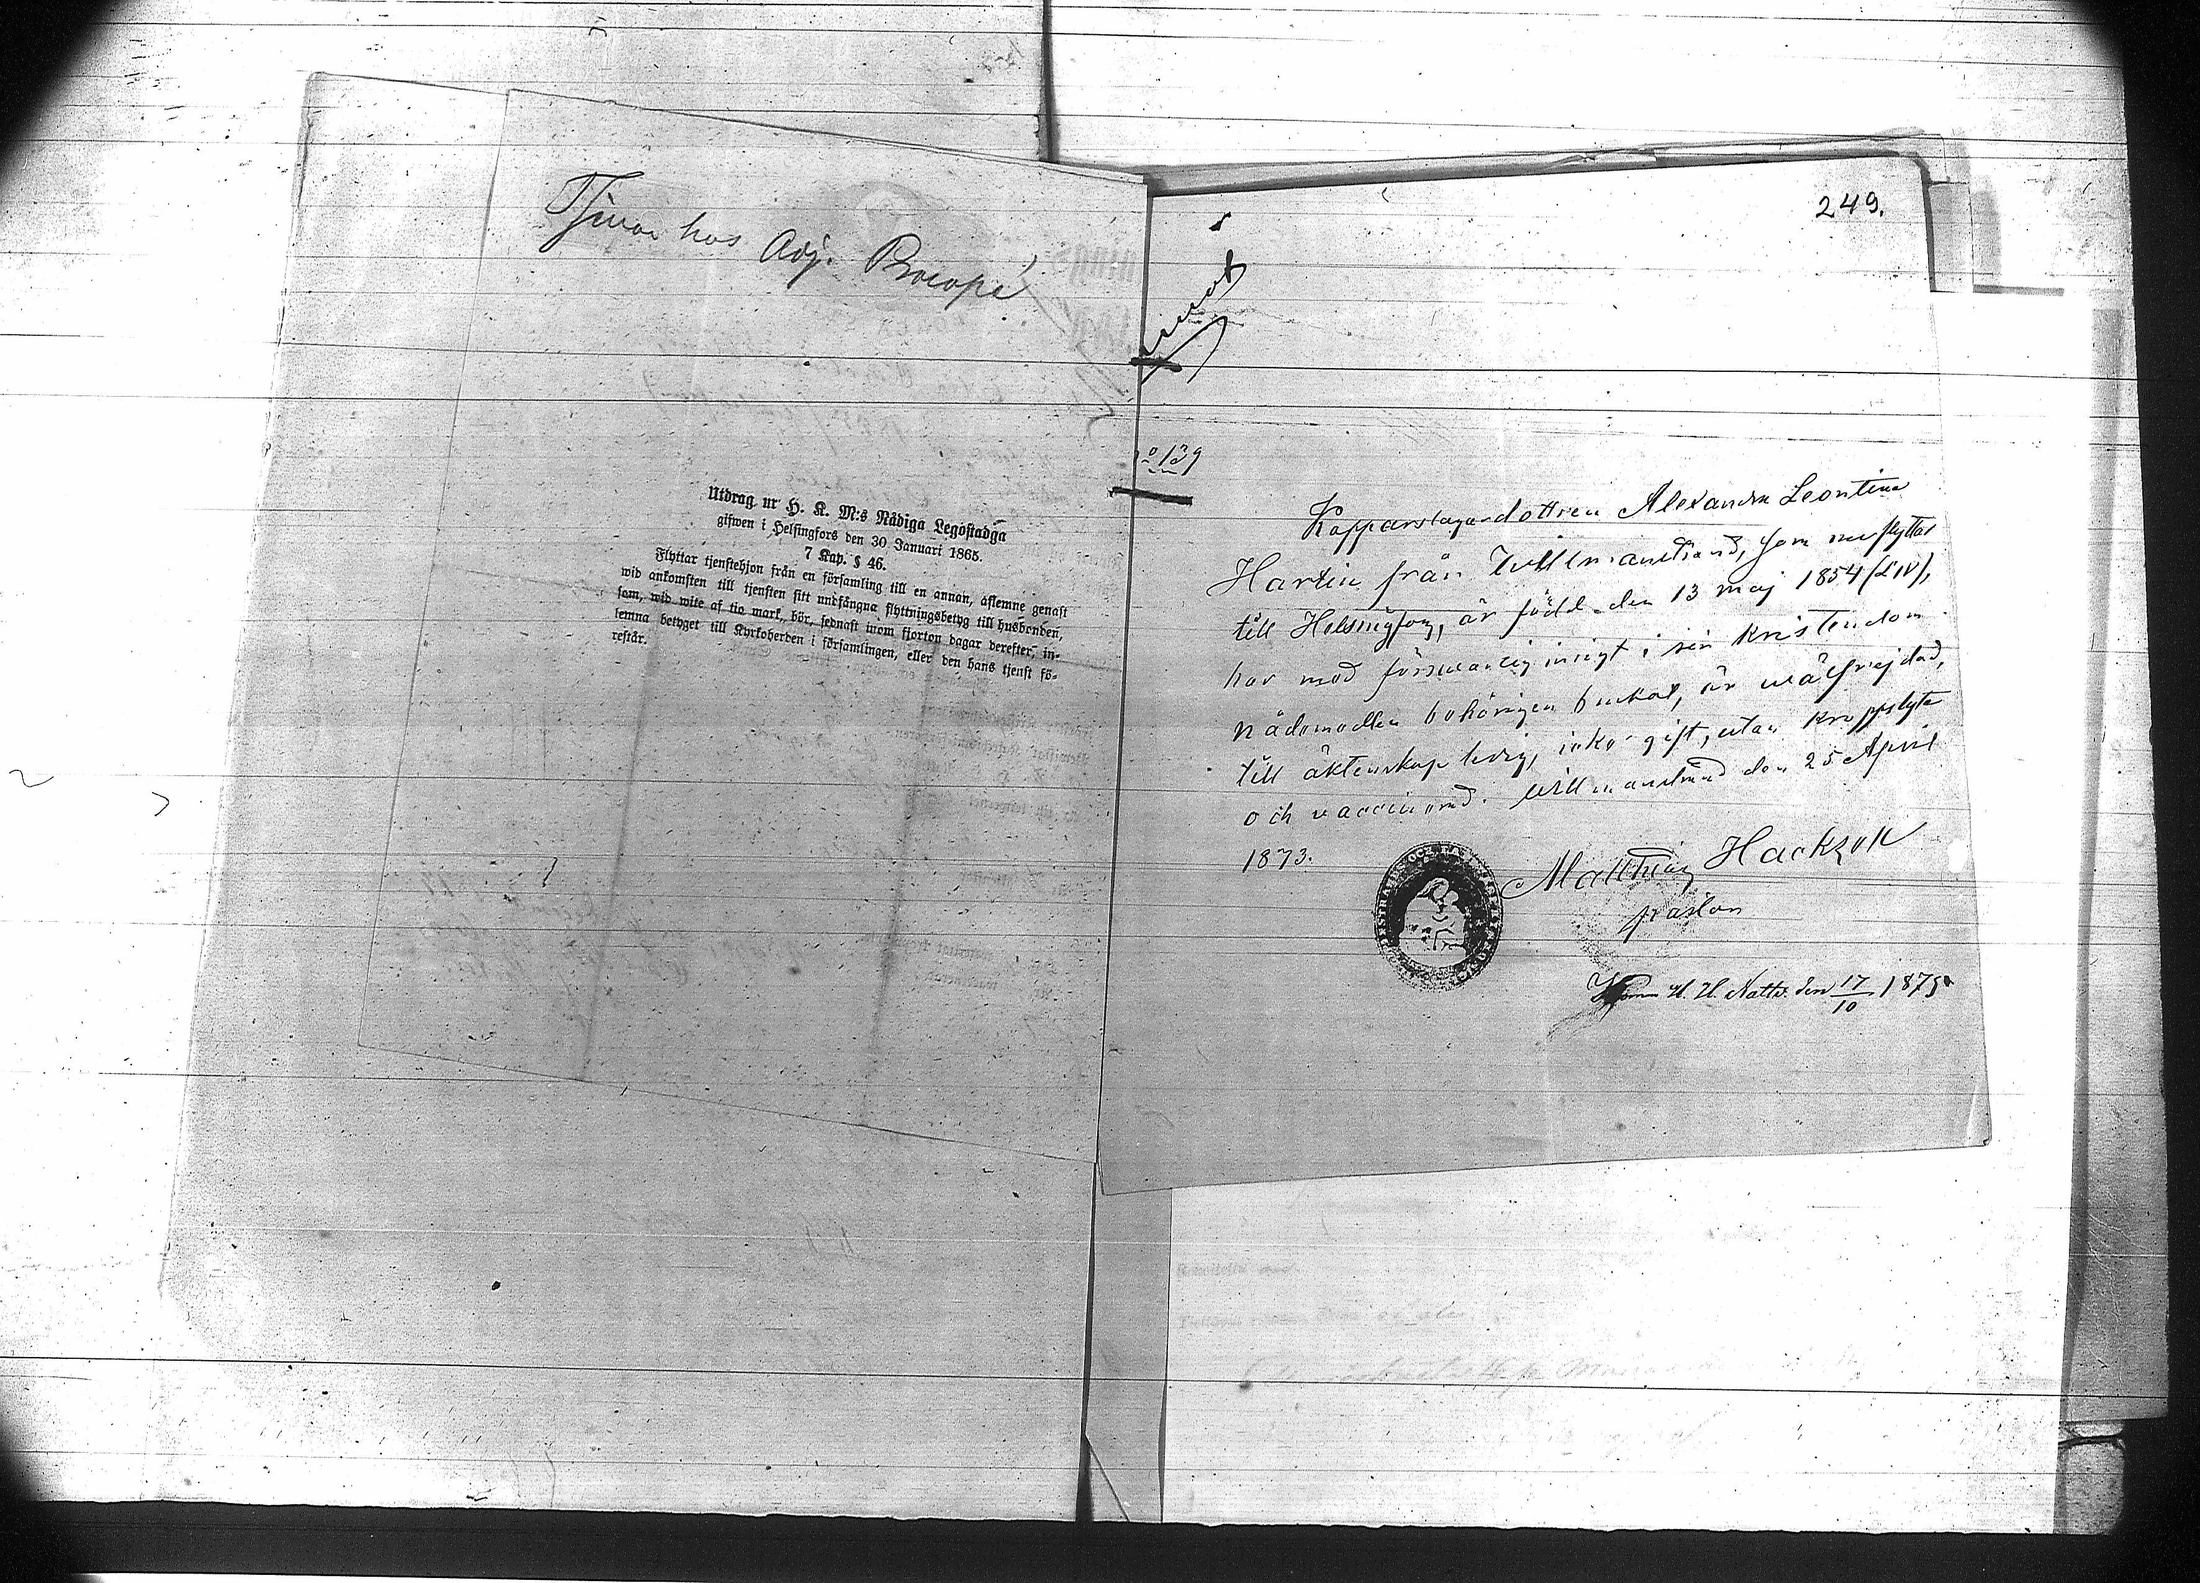 Tjenar hos Adj. Procopé
Utdrag ur H. K. M:s Nådiga Legostadga
gifwen i Helsingfors den 30 Januari 1865.
7 Kap. § 46.
Flyttar tjenstehjon från en församling till en annan, aflemne genast
wid ankomsten till tjensten sitt undfångna flyttningsbetyg till husbonden,
som, wid wite af tio mark, bör, sednast inom fjorton dagar derefter, in-
lemna betyget till Kyrkoherden i församlingen, eller den hans tjenst fö-
restår.
249.
No 139
Kopparslagardottren Alexandra Leontina
Hartin från Willmanstrand, som nu flyttar
till Helsingfors, är född den 13 maj 1854 (LIV),
har med försvarlig insigt i sin kristendom
nådemedlen behörigen brukat, är wälfrejdad,
till äktenskap ledig, icke gift, utan kroppslyte
och vaccinerad. Willmanstrand den 25 April
1873.
Matthias Hackzell
pastor
H. H. Nattv. den 17/10 1875